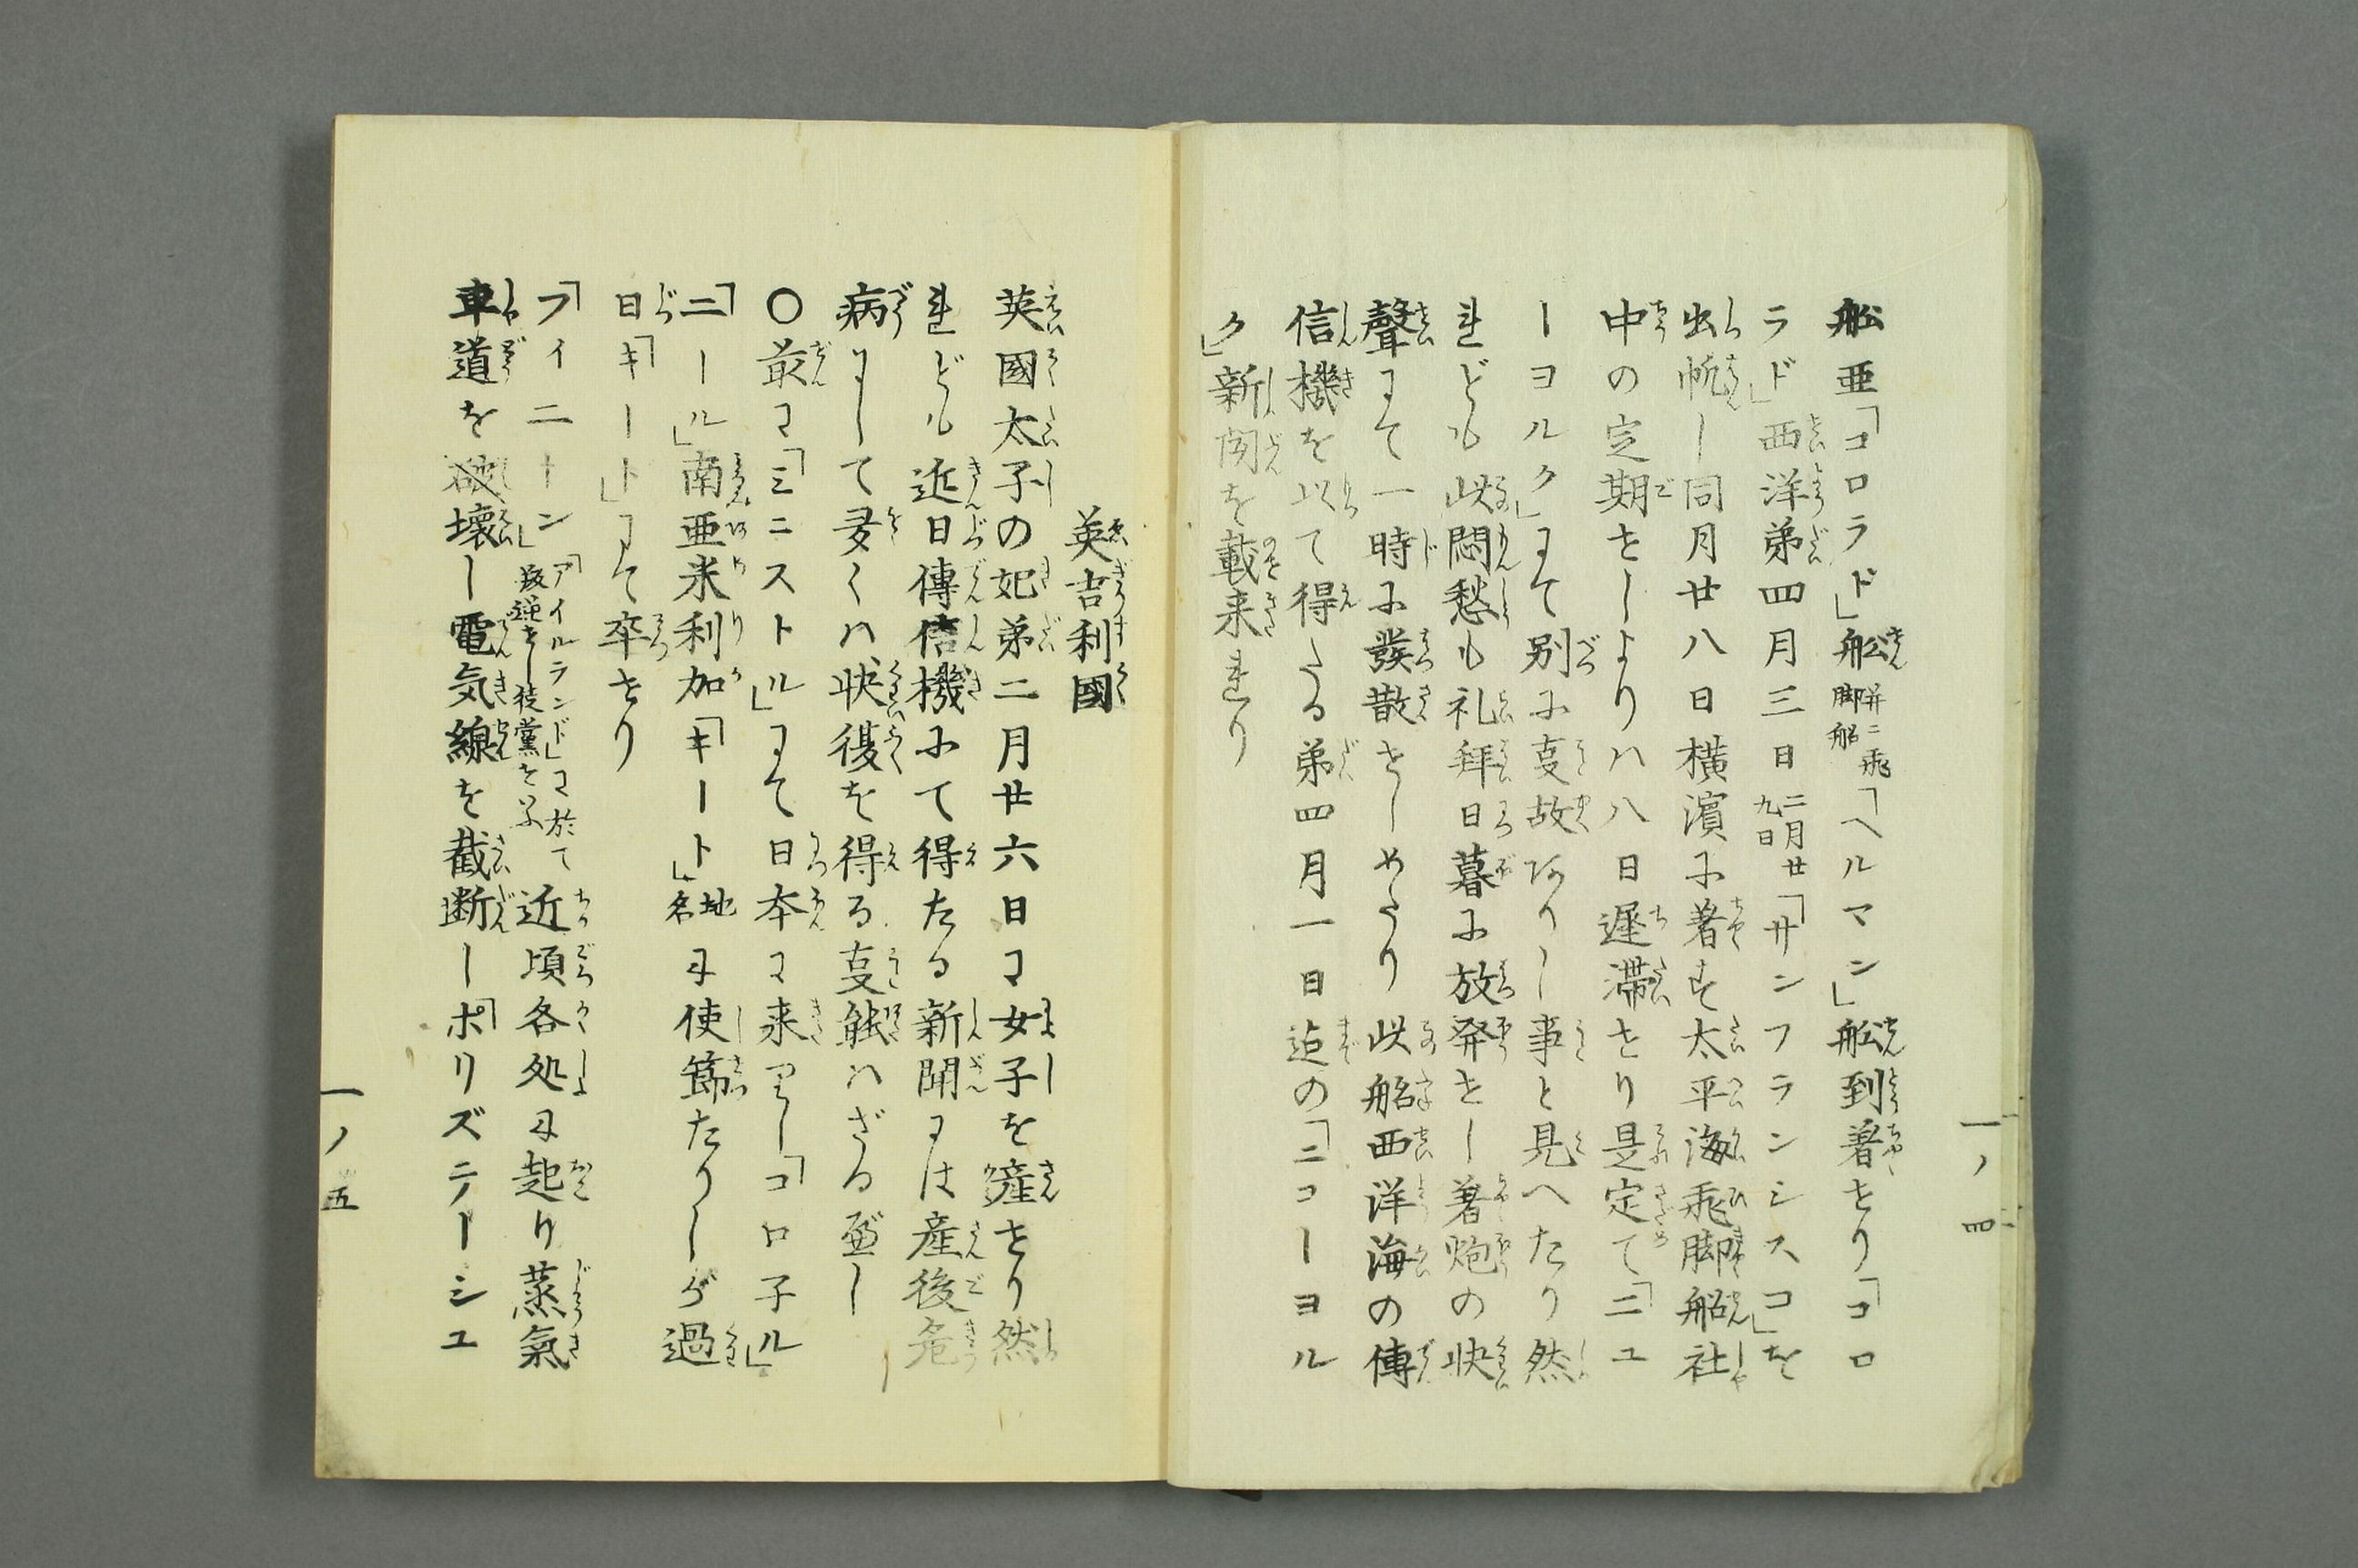 一ノ四
船亜「コロラド」船 并ニ飛脚船 「ヘルマン」船到著せり「コロ
ラド」西洋第四月三日 二月廿九日 「サンフランシスコ」を
出帆し同月廿八日横濱に著す太平海飛脚船社
中の定期せしよりハ八日遅滞せり是定て「ニユ
ーヨルク」にて別に事故ありし事と見へたり然
れども此悶愁も礼拜日暮に放発せし著炮の快
聲にて一時に發散せしめたり此船西洋海の傳
信機を以て得たる第四月一日迠の「ニユーヨル
ク」新聞を載来れり
英吉利國
英國太子の妃第二月廿六日に女子を産せり然
れども近日傳信機にて得たる新聞には産後危
病にして全くハ快復を得る事能ハざるべし
〇最に「ミニストル」にて日本に来りし「コロ子ル」
「ニール」南亜米利加「キート」 地名 に使節たりしが過
日「キート」にて卒せり
「フィニーン」 「アイルランド」に於て叛逆せし徒黨を云 近頃各処に起り蒸氣
車道を破壊し電気線を截断し「ポリズテーシユ
一ノ五